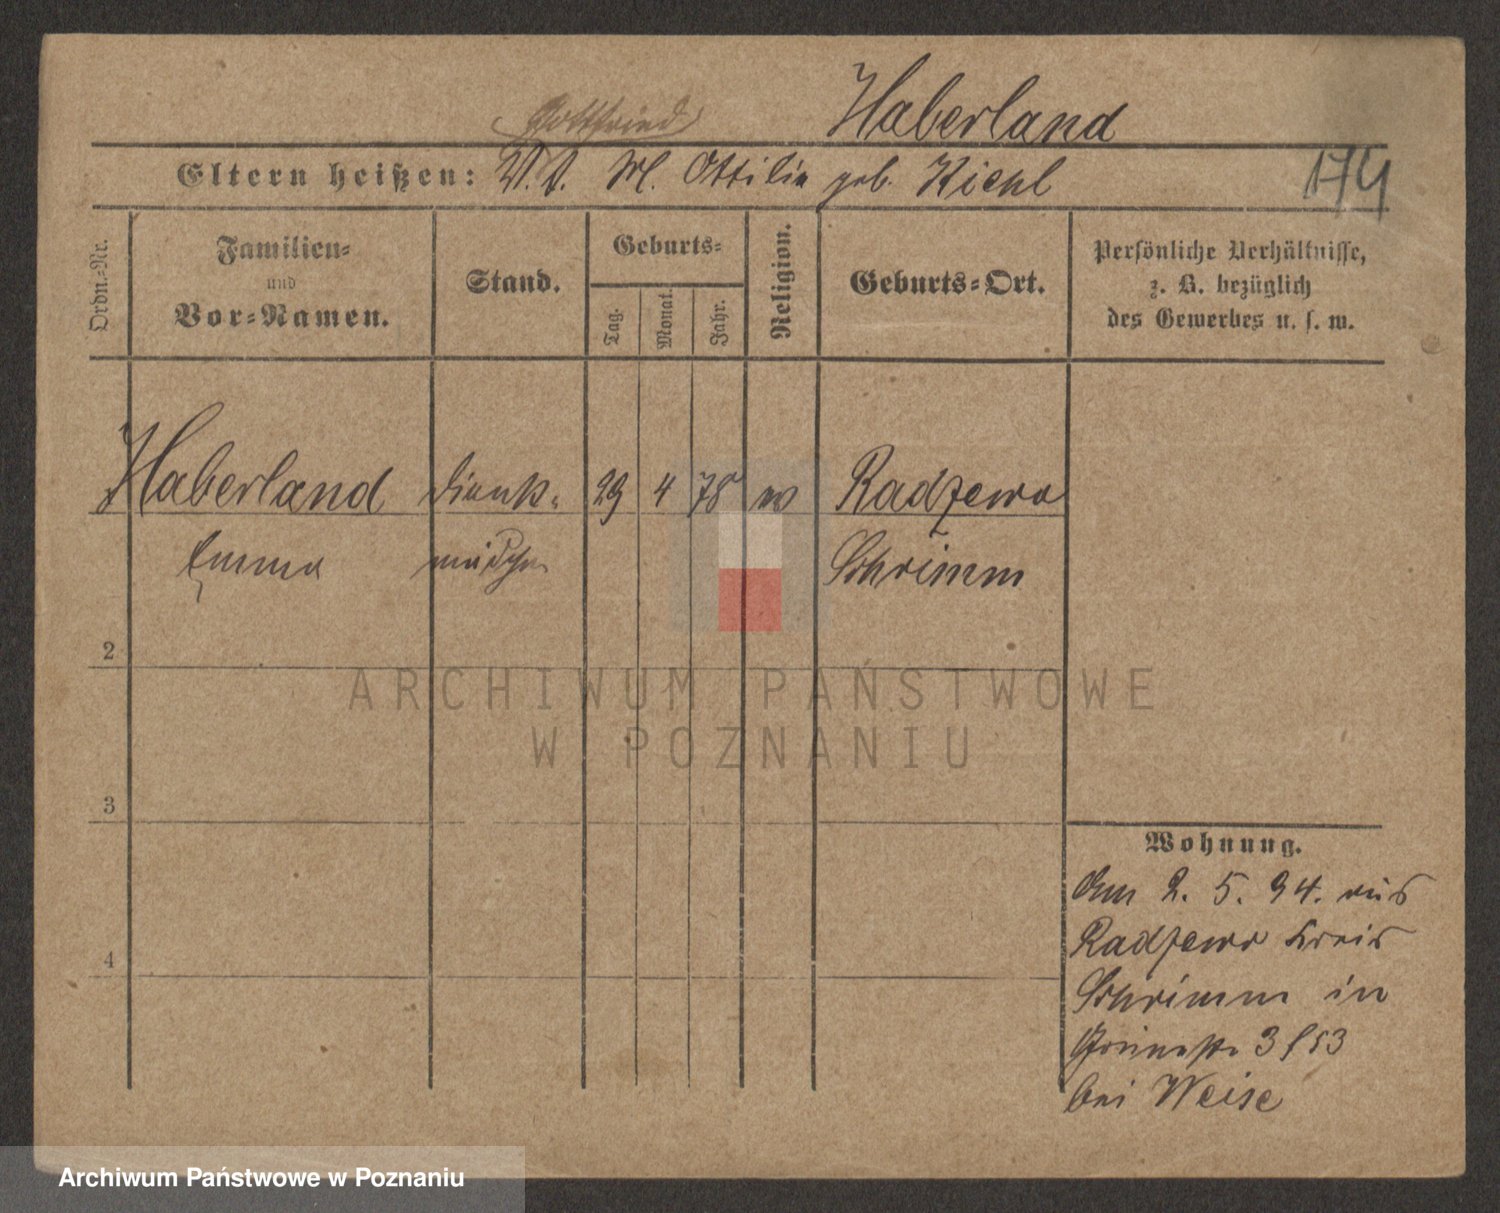 Haberland
(Gottfried)
Eltern heißen: V. t. M. Ottilie geb. Kiehl
174
Ordn.-Nr.
Familien-
und
Vor-Namen.
Stand.
Geburts-
Tag.
Monat.
Jahr.
Religion.
Geburts-Ort.
Persönliche Verhältnisse,
z. B. bezüglich
des Gewerbes u. s. w.
Haberland Dienst- 29 4 78 Radzewo
Emma mädchen Schrimm
2
ARCHIWUM PAŃSTWOWE
W POZNANIU
3
4
Wohnung.
Am 2. 5. 94. aus
Radzewo Kreis
Schrimm in
Grünestr 3
bei Weise
Archiwum Państwowe w Poznaniu